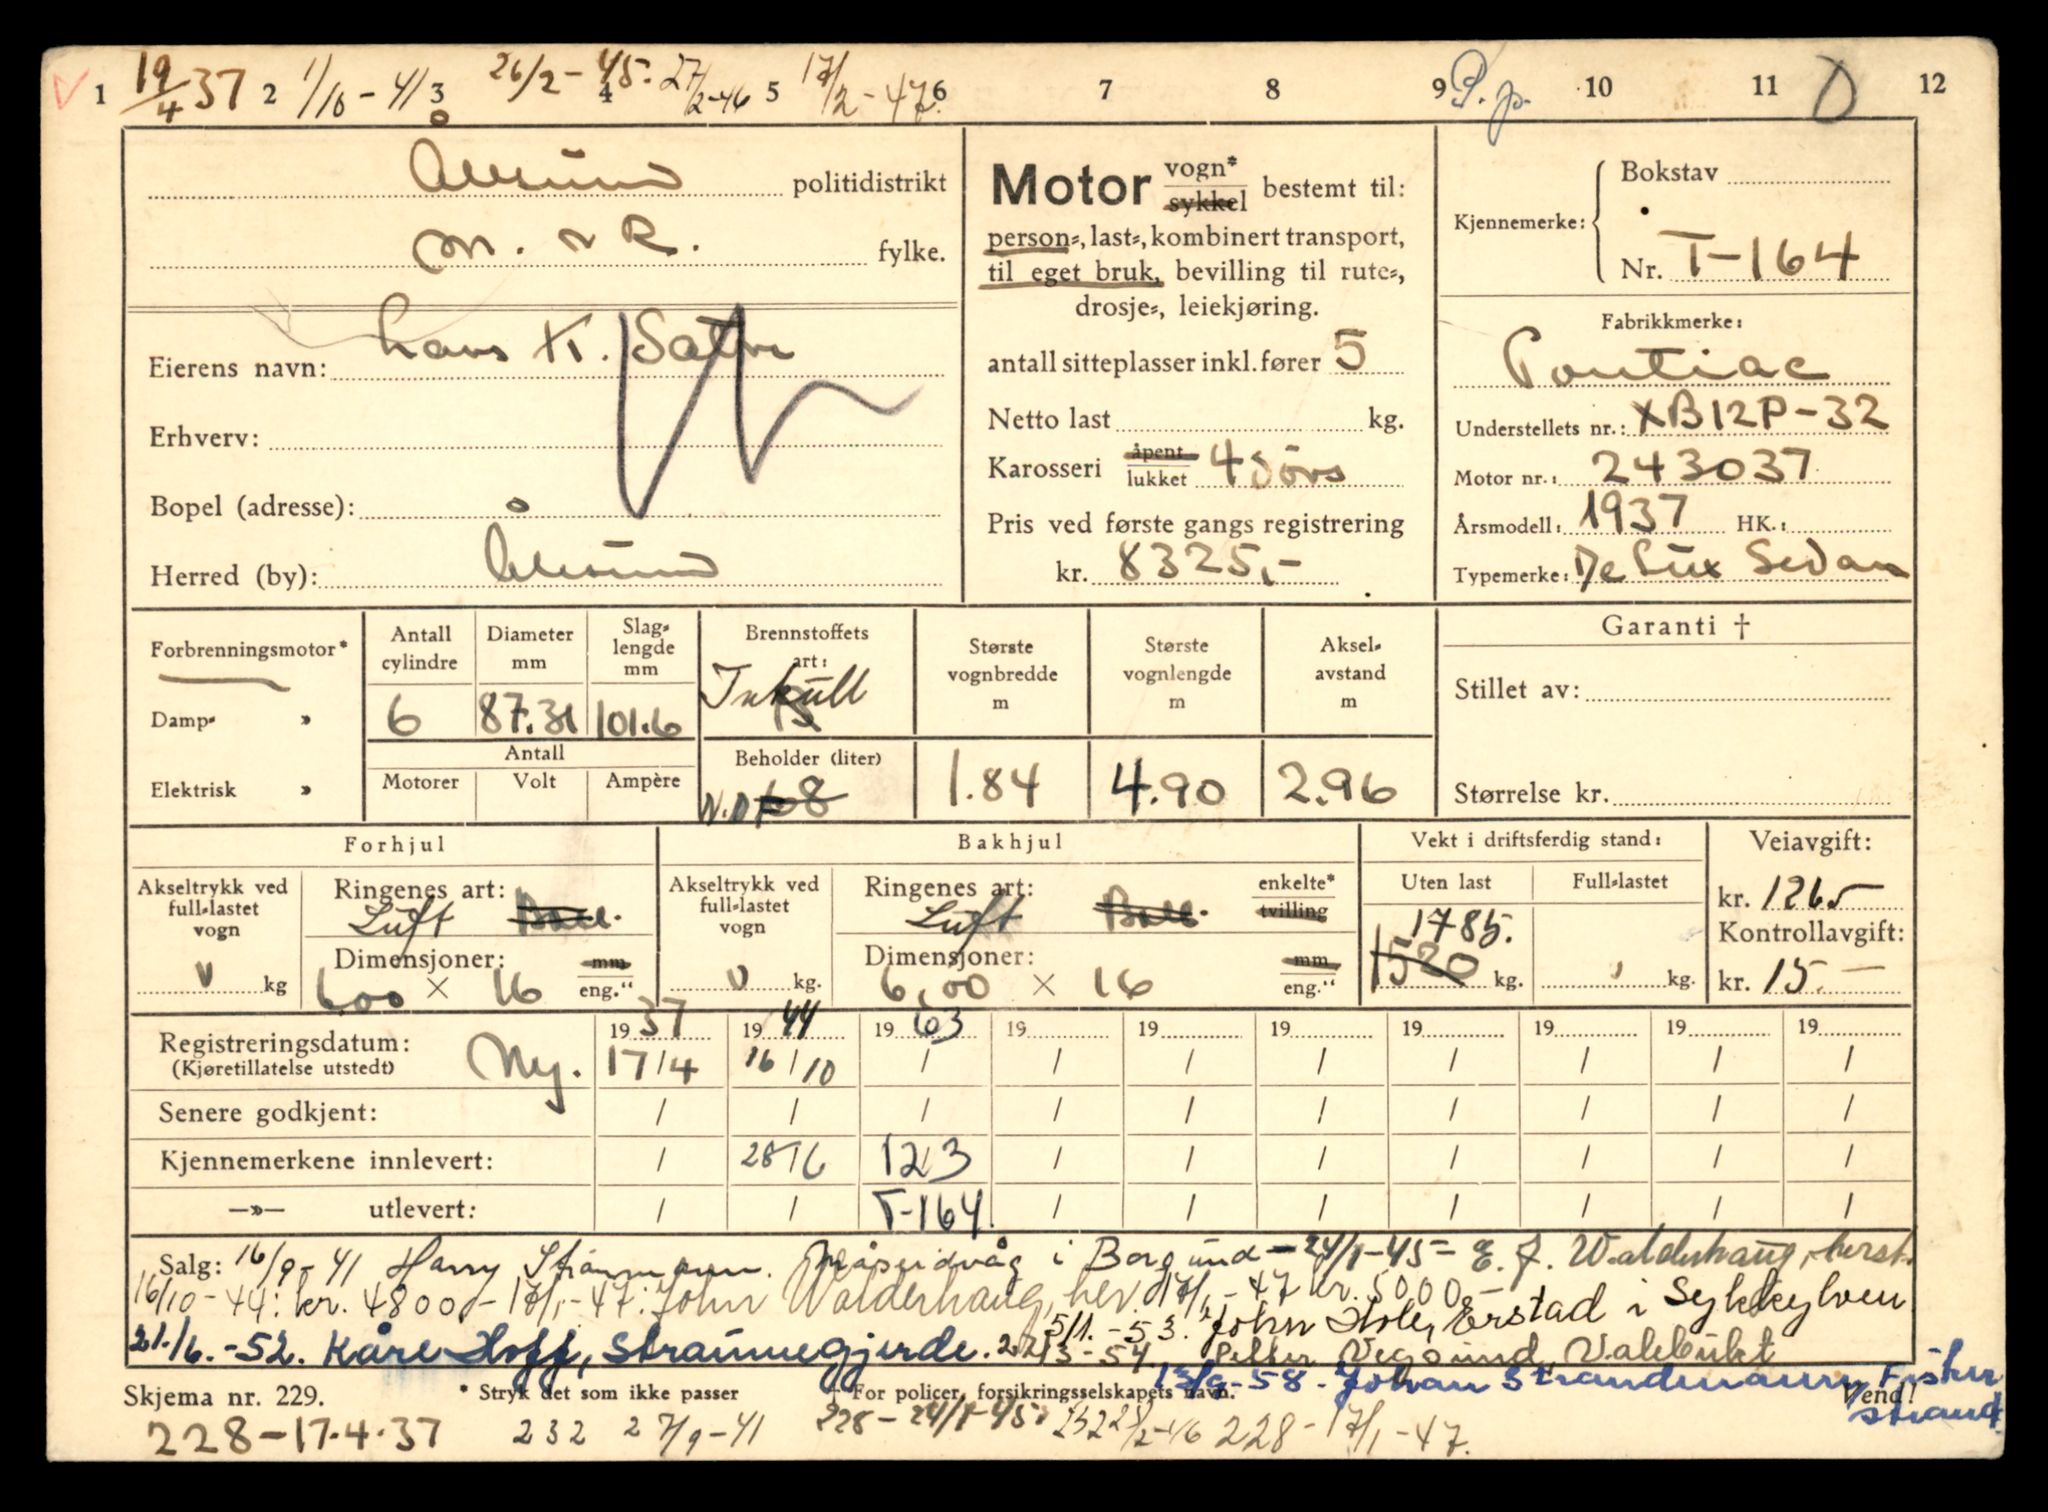 1 19/4 37 2 1/10-41 3 26/2-45. 4 27/2-46 5 17/2-47. 6 7 8 9 P.p. 10 11 D 12
Ålesund politidistrikt
M. & R. fylke.
Eierens navn: Lars K. Sætre
Erhverv:
Bopel (adresse):
Herred (by): Ålesund
Motor vogn* sykkel bestemt til:
person-, last-, kombinert transport,
til eget bruk, bevilling til rute-,
drosje-, leiekjøring.
antall sitteplasser inkl. fører 5
Netto last kg.
Karosseri åpent lukket 4 dørs
Pris ved første gangs registrering
kr. 8325,-
Kjennemerke: Bokstav
Nr. T-164
Fabrikkmerke:
Pontiac
Understellets nr.: XB12P-32
Motor nr.: 243037
Årsmodell: 1937 HK.:
Typemerke: De Lux Sedan
Forbrenningsmotor*
Damp- »
Elektrisk »
Antall cylindre 6
Diameter mm 87.31
Slaglengde mm 101.6
Antall
Motorer Volt Ampère
Brennstoffets art:
B
Beholder (liter)
68
Største vognbredde m 1.84
Største vognlengde m 4.90
Akselavstand m 2.96
Garanti †
Stillet av:
Størrelse kr.
Forhjul
Akseltrykk ved full-lastet vogn
kg
Ringenes art:
Luft Ball.
Dimensjoner: mm
6.00 × 16 eng."
Bakhjul
Akseltrykk ved full-lastet vogn
kg.
Ringenes art: enkelte* tvilling
Luft Ball.
Dimensjoner: mm
6,00 × 16 eng."
Vekt i driftsferdig stand:
Uten last Full-lastet
1785.
1520 kg. kg.
Veiavgift:
kr. 126
Kontrollavgift:
kr. 15.-
19 37 19 44 19 63 19 19 19 19 19 19 19
Registreringsdatum: Ny. 17/4 16/10 / / / / / / / /
(Kjøretillatelse utstedt)
Senere godkjent: / / / / / / / / / /
Kjennemerkene innlevert: / 28/6 12/3 / / / / / / /
—»— utlevert: / / T-164. / / / / / / /
Salg: 16/9-41 Harry Strømmann. Måseidvåg i Borgund - 24/1-45 = E. J. Walderhaug, herst.
16/10-44: kr. 4800,- 17/1-47: John Walderhaug, her. 17/1-47 kr. 5000,-
5/1.-53. John Hole, Erstad i Sykkylven
21./6.-52. Kåre Hoff, Straumegjerde. 22/3-54. Petter Vegsund, Valebukt
13/9-58. Johan Strandmann, Fisker
strand.
Skjema nr. 229. * Stryk det som ikke passer † For policer, forsikringsselskapets navn. Vend!
228-17.4.37 232 27/9-41 228-24/1-45 228-17/1-47.